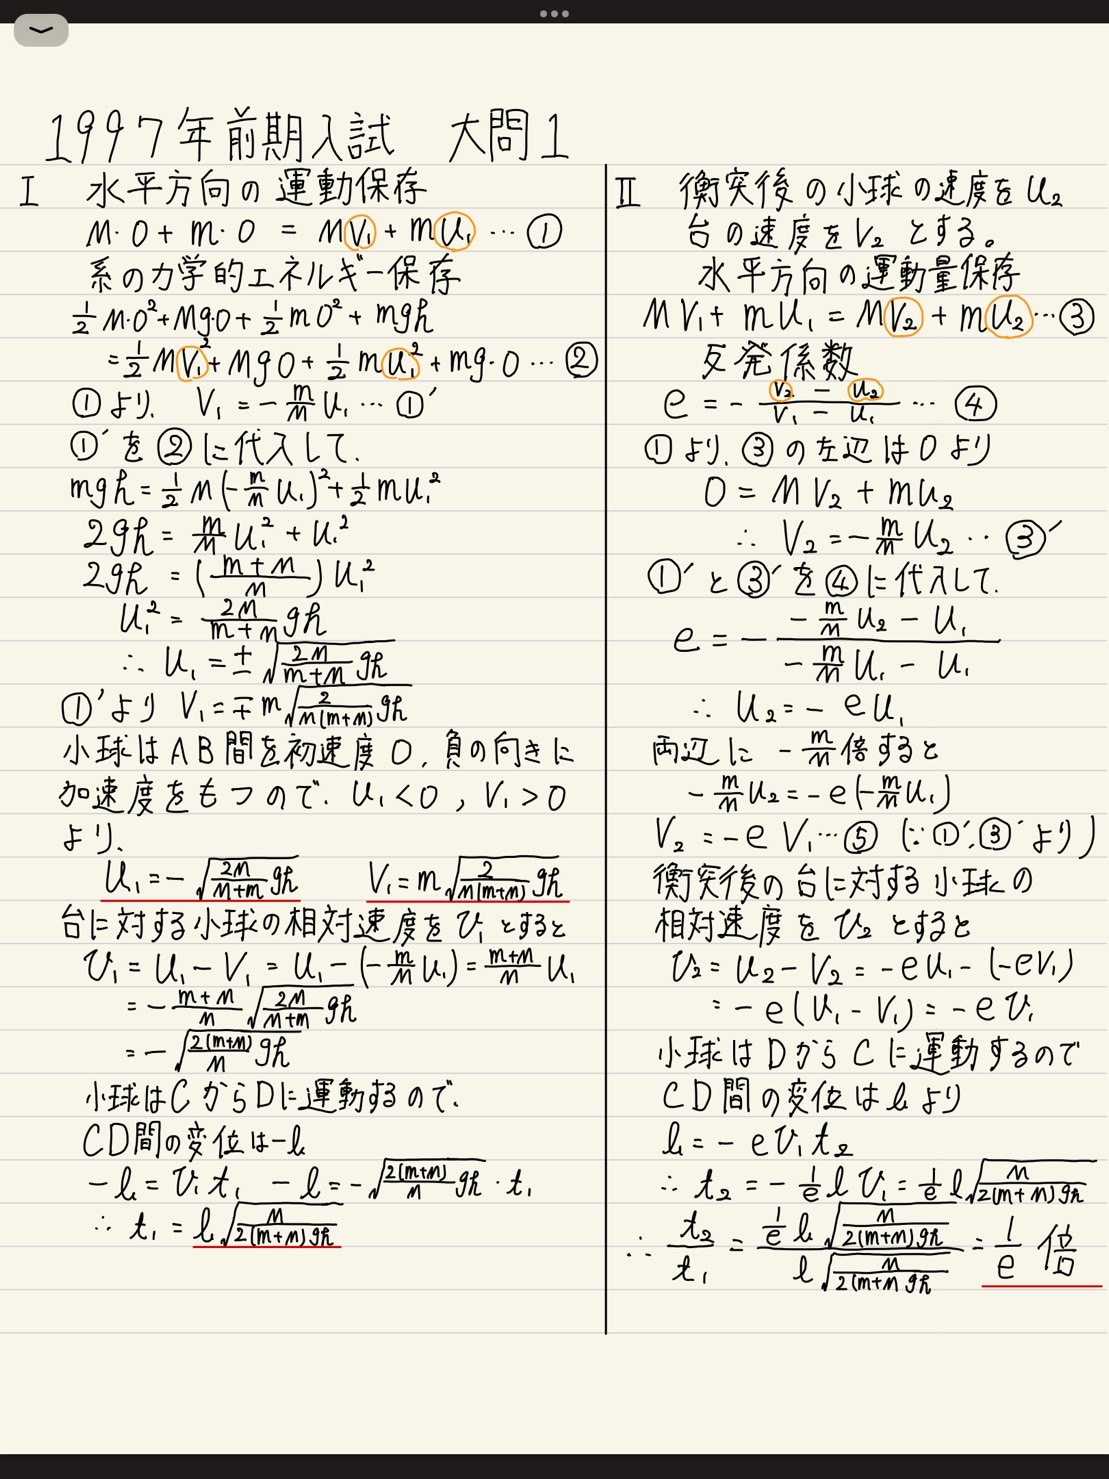 1997年前期入試 大問1
I 水平方向の運動保存
M·0 + m·0 = MV₁ + mu₁ … ①
系の力学的エネルギー保存
½M·0² + Mg·0 + ½m0² + mgh
= ½MV₁² + Mg0 + ½mu₁² + mg·0 … ②
①より、 V₁ = -m/M u₁ … ①′
①′を②に代入して、
mgh = ½M(-m/M u₁)² + ½mu₁²
2gh = m/M u₁² + u₁²
2gh = ((m+M)/M) u₁²
u₁² = 2M/(m+M) gh
∴ u₁ = ±√(2M/(m+M) gh)
①′より V₁ = ∓m√(2/(M(m+M)) gh)
小球はAB間を初速度0、負の向きに
加速度をもつので、u₁<0, V₁>0
より、
u₁ = -√(2M/(M+m) gh) V₁ = m√(2/(M(m+M)) gh)
台に対する小球の相対速度をv₁とすると
v₁ = u₁ - V₁ = u₁ - (-m/M u₁) = (m+M)/M u₁
= -(m+M)/M √(2M/(M+m) gh)
= -√(2(m+M)/M gh)
小球はCからDに運動するので、
CD間の変位は-l
-l = v₁t₁ -l = -√(2(m+M)/M gh)·t₁
∴ t₁ = l√(M/(2(m+M)gh))
II 衝突後の小球の速度をu₂
台の速度をV₂とする。
水平方向の運動量保存
MV₁ + mu₁ = MV₂ + mu₂ … ③
反発係数
e = -(V₂ - u₂)/(V₁ - u₁) … ④
①より、③の左辺は0より
0 = MV₂ + mu₂
∴ V₂ = -m/M u₂ … ③′
①′と③′を④に代入して、
e = -(-m/M u₂ - u₁)/(-m/M u₁ - u₁)
∴ u₂ = -eu₁
両辺に -m/M倍すると
-m/M u₂ = -e(-m/M u₁)
V₂ = -eV₁ … ⑤ (∵①′,③′より)
衝突後の台に対する小球の
相対速度をv₂とすると
v₂ = u₂ - V₂ = -eu₁ - (-eV₁)
= -e(u₁ - V₁) = -ev₁
小球はDからCに運動するので
CD間の変位はlより
l = -ev₁t₂
∴ t₂ = -1/e l v₁ = 1/e l√(M/(2(m+M)gh))
∴ t₂/t₁ = (1/e l√(M/(2(m+M)gh)))/(l√(M/(2(m+M gh))) = 1/e 倍